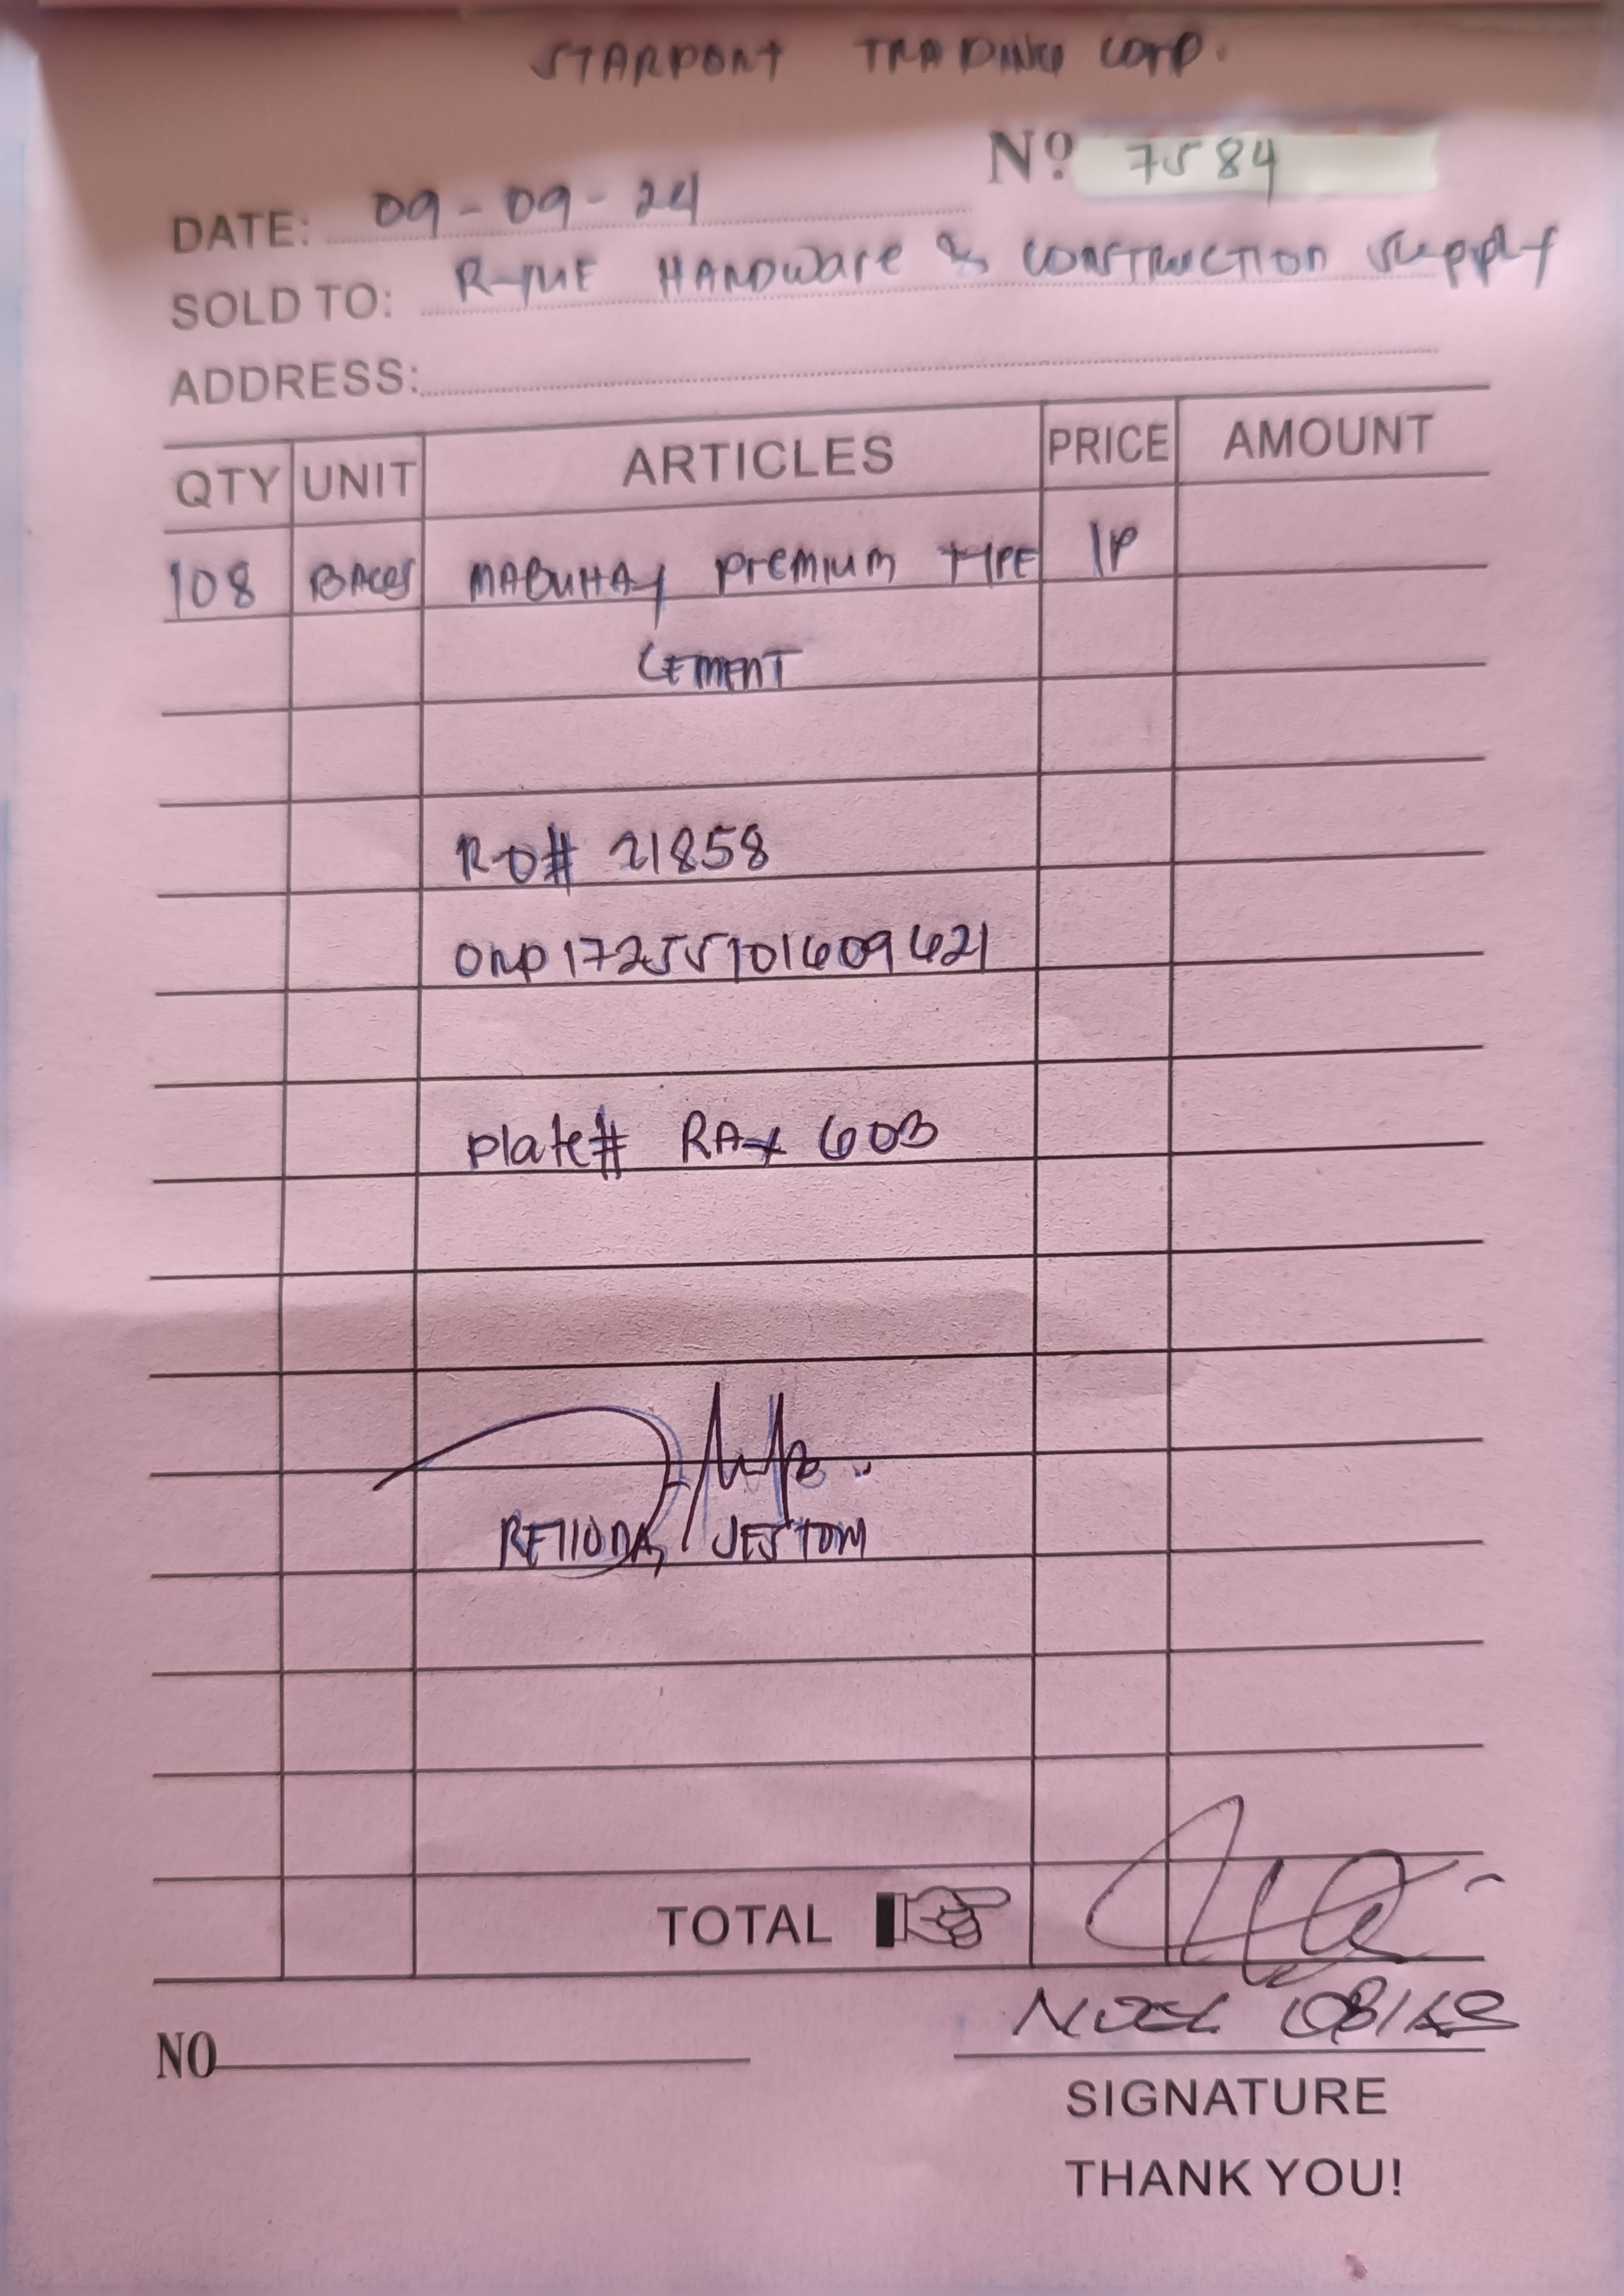 STARPORT TRADING CORP.
Nº 7584
DATE: 09-09-24
SOLD TO: HARDware & CONSTRUCTION Supply
ADDRESS:
QTY UNIT ARTICLES PRICE AMOUNT
108 BAGS MABUHAY premium TYPE 1P
CEMENT
RO# 21858
plate# RAY 603
JESTOM
TOTAL
NOEL
NO
SIGNATURE
THANK YOU!